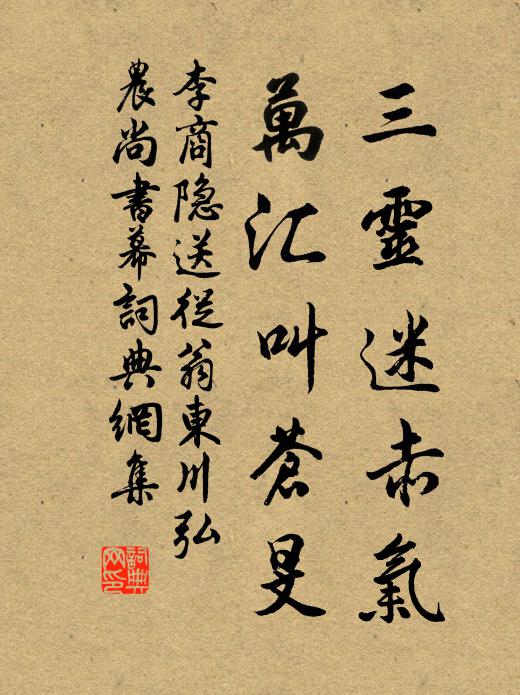 三靈迷赤氣
萬汇叫蒼旻
李商隐送從翁東川弘
農尚書幕詞典網集
詞典
网印